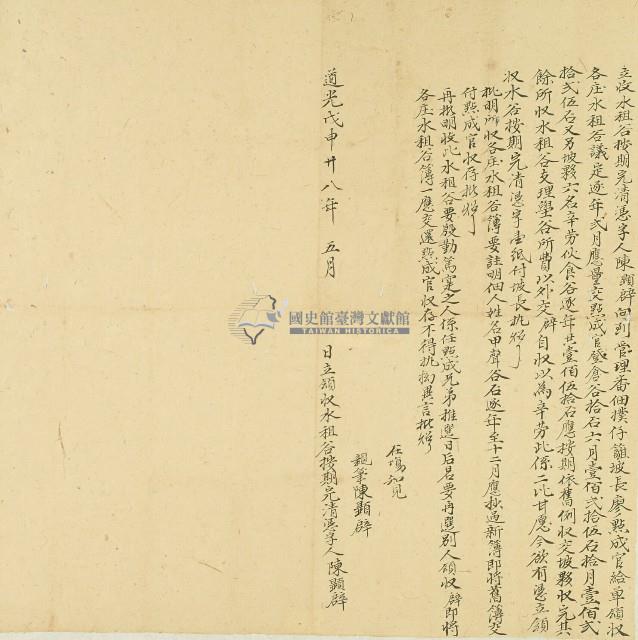 立收水租谷按期完清憑字人陳顯辟向到管理番佃撲仔籬坡長廖點成官給单領收
各庄水租谷議定逐年弍月應量交點成官發倉谷拾石六月壹佰弍拾伍石拾月壹佰弍
拾弍伍石又另坡夥六名辛劳伙食谷逐年共壹佰伍拾石應按期依舊例收交坡夥收完其
餘所收水租谷支理壆谷所費以外交辟自收以為辛劳此係二比甘愿今欲有憑立領
收水谷按期完清憑字壹紙付坡長執炤
批明所收各庄水租谷簿要註明個人姓名甲聲谷石逐年至十二月應抄過新簿即將舊簿交
付點成官收存批炤
再批明收此水租谷要殷勤篤寔之人係任點成兄弟推選日后若要再選別人領收辟即將
各庄水租谷簿一應交還點成官收存不得執拗異言批炤
在塲知見
親筆陳顯辟
道光戊申廿八年 五月 日立領收水租谷按期完清憑字人陳顯辟
國史館臺灣文獻館
TAIWAN HISTORICA